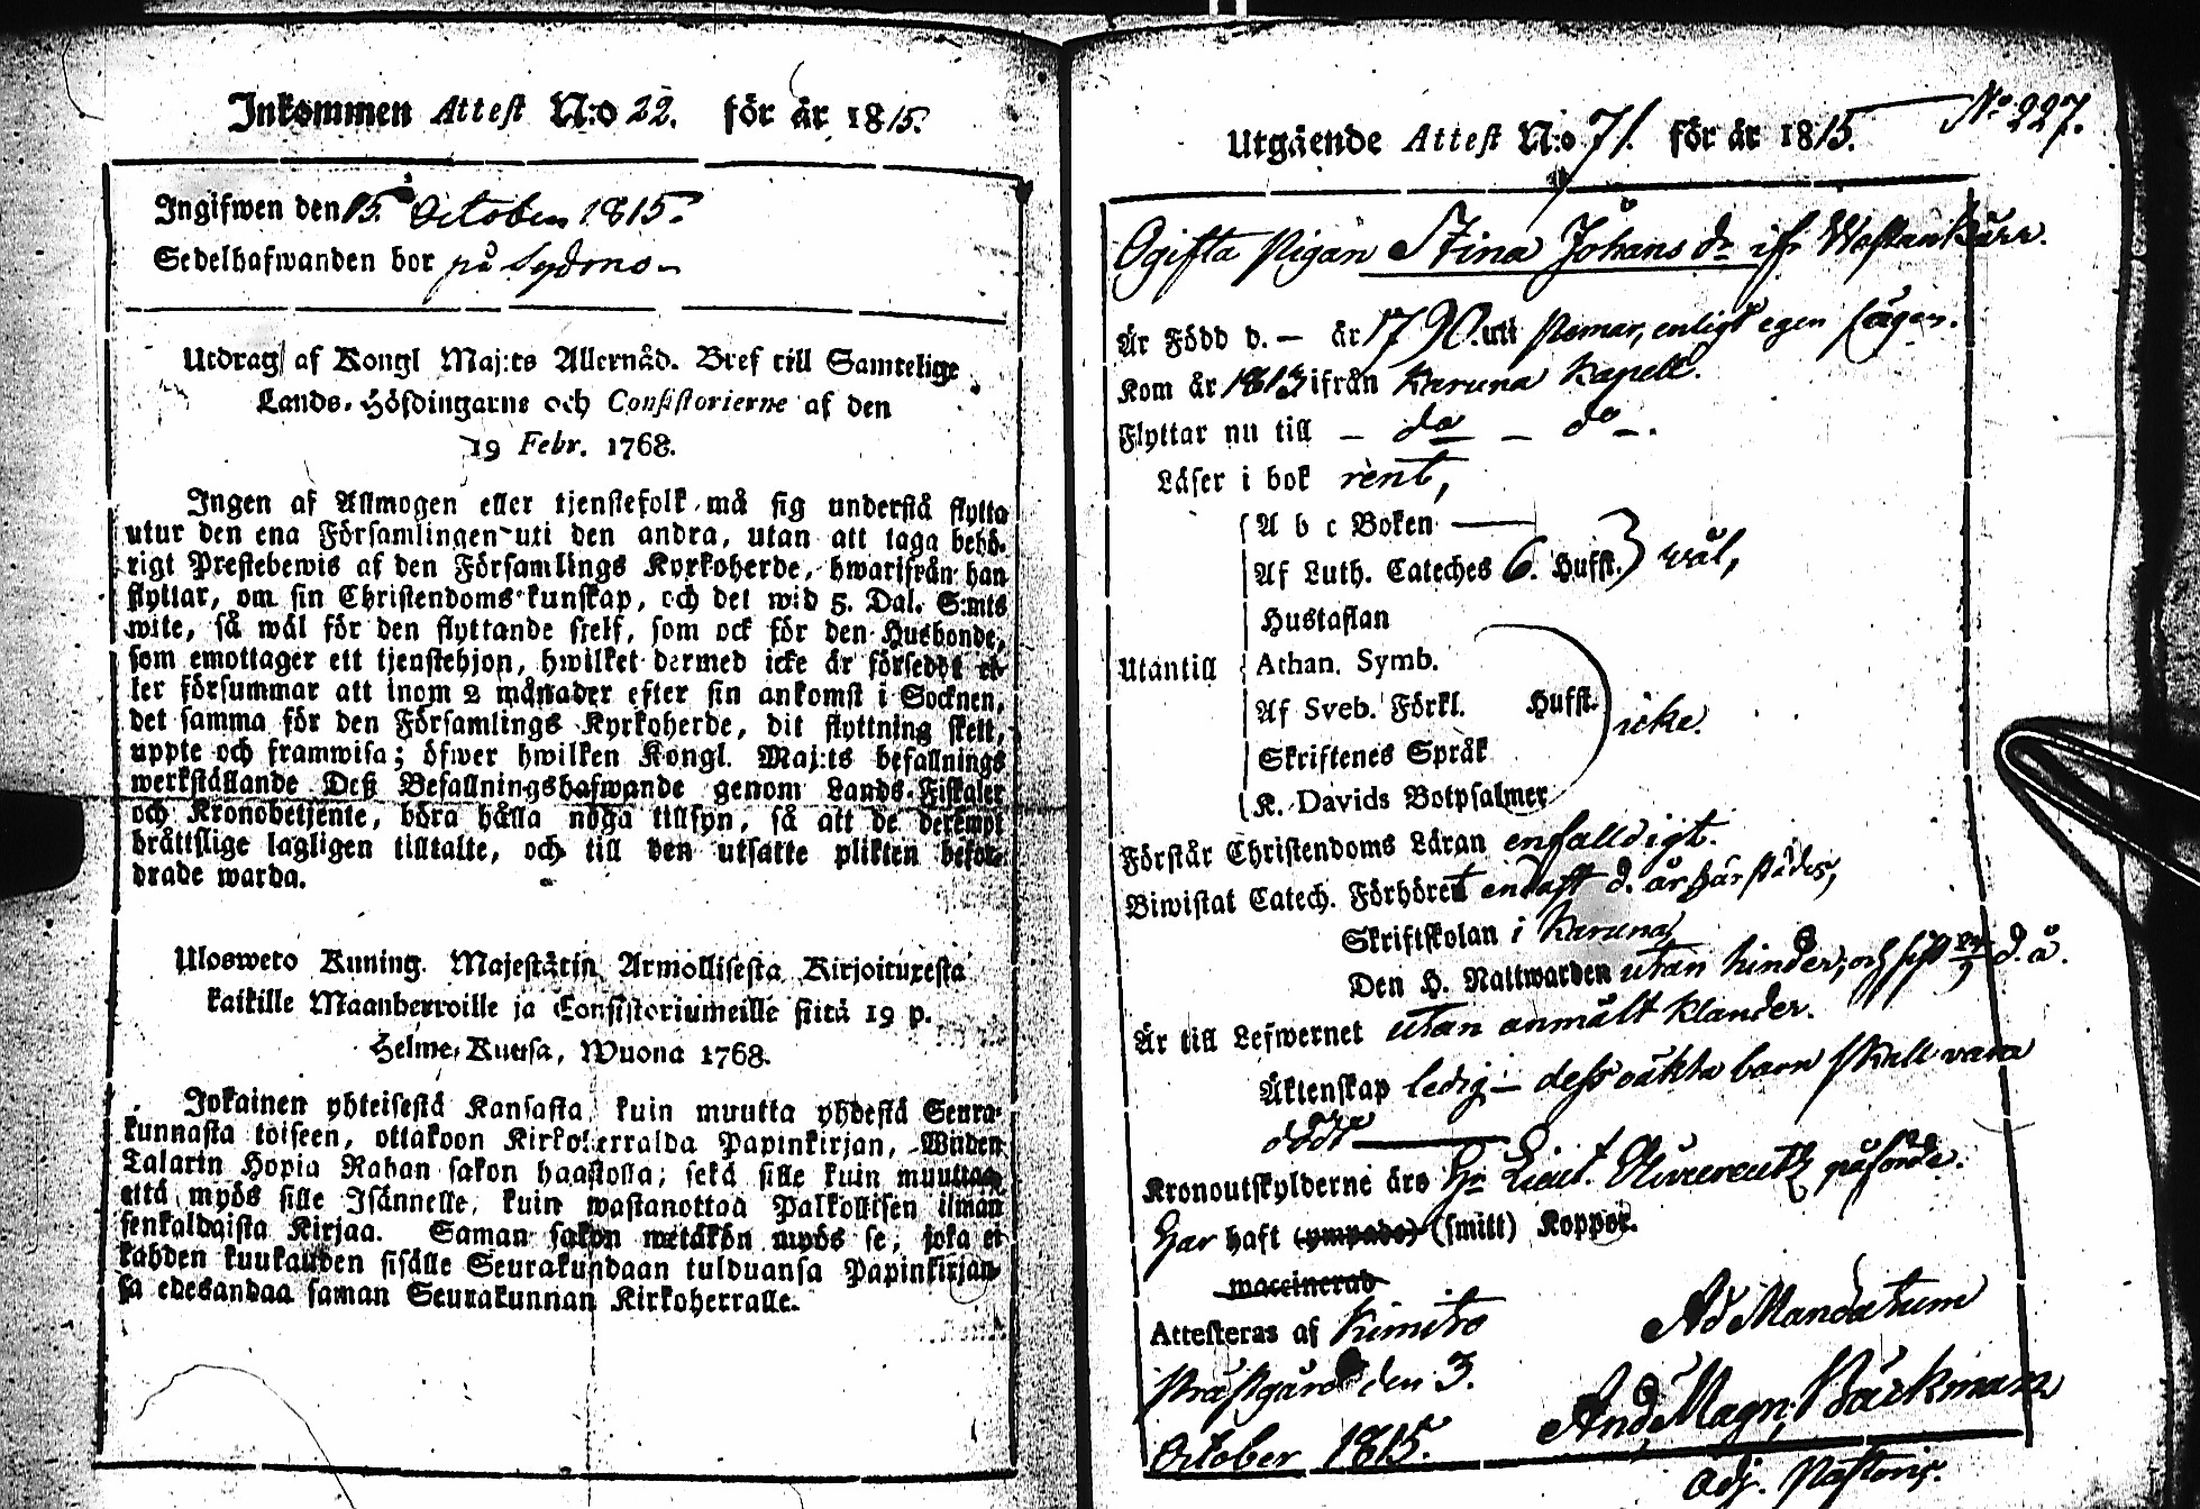 Inkommen Attest N:o 22. för år 1815.
Ingifwen den 15. October 1815.
Sedelhafwanden bor på Sydmo
Utdrag af Kongl Maj:ts Allernåd. Bref till Samtelige
Lands-Höfdingarne och Consistorierne af den
19 Febr. 1768.
Ingen af Allmogen eller tjenstefolk må sig understå flytta
utur den ena Församlingen uti den andra, utan att taga behö-
rigt Prestebewis af den Församlings Kyrkoherde, hwarifrån han
flyttar, om sin Christendoms kunskap, och det wid 5. Dal. S:mts
wite, så wäl för den flyttande sjelf, som ock för den Husbonde,
som emottager ett tjenstehjon, hwilket dermed icke är försedt el-
ler försummar att inom 2 månader efter sin ankomst i Socknen,
det samma för den Församlings Kyrkoherde, dit flyttning skett,
uppte och framwisa; öfwer hwilken Kongl. Maj:ts befallnings
werkställande Deß Befallningshafwande genom Lands-Fiskaler
och Kronobetjente, böra hålla noga tillsyn, så att de deremot
bråttslige lagligen tilltalte, och till den utsatte plikten befor-
drade warda.
Ulosweto Kuning. Majestätin Armollisesta Kirjoituxesta
kaikille Maanherroille ja Consistoriumeille siitä 19 p.
Helme-Kuusa, Wuona 1768.
Jokainen yhteisestä Kansasta, kuin muutta yhdestä Seura-
kunnasta toiseen, ottakoon Kirkoherralda Papinkirjan, Wiiden
Talarin Hopia Rahan sakon haastolla; sekä sille kuin muuttaa
että myös sille Isännelle, kuin wastanottaa Palkollisen ilman
senkaldaista Kirjaa. Saman sakon wetäkön myös se, joka ei
kahden kuukauden sisälle Seurakundaan tulduansa Papinkirjan-
sa edesandaa saman Seurakunnan Kirkoherralle.
No 227.
Utgående Attest N:o 71. för år 1815.
Ogifta Pigan Stina Johans dr ifr Wastankärr.
Är Född d. — år 1790. uti Pemar, enligt egen sägen.
Kom år 1813 ifrån Karuna Kapell.
Flyttar nu till — do — do —.
Läser i bok rent,
A b c Boken —
Af Luth. Cateches 6. Hufst. wäl,
Hustaflan
Utantill Athan. Symb.
Af Sveb. Förkl. Hufst. icke.
Skriftenes Språk
K. Davids Botpsalmer
Förstår Christendoms Läran enfalldigt.
Biwistat Catech. Förhöret endast d. år härstädes,
Skriftskolan i Karuna
Den H. Nattwarden utan hinder, och sist d. å.
Är till Lefwernet utan anmält klander.
Äktenskap ledig — dess oäkta barn skall vara
dödt —
Kronoutskylderne äro Hr Lieut. påförde.
Har haft (ympade) (smitt) Koppor.
waccinerad
Attesteras af Kimito
Prästgård den 3.
October 1815.
Ad Mandatum
And. Magn. Bäckman
Adj. Pastoris.